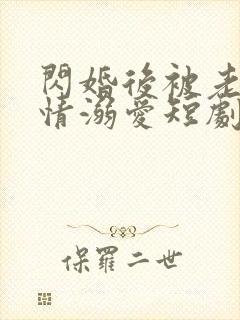 閃婚後被老
情溺愛短劇
保羅二世